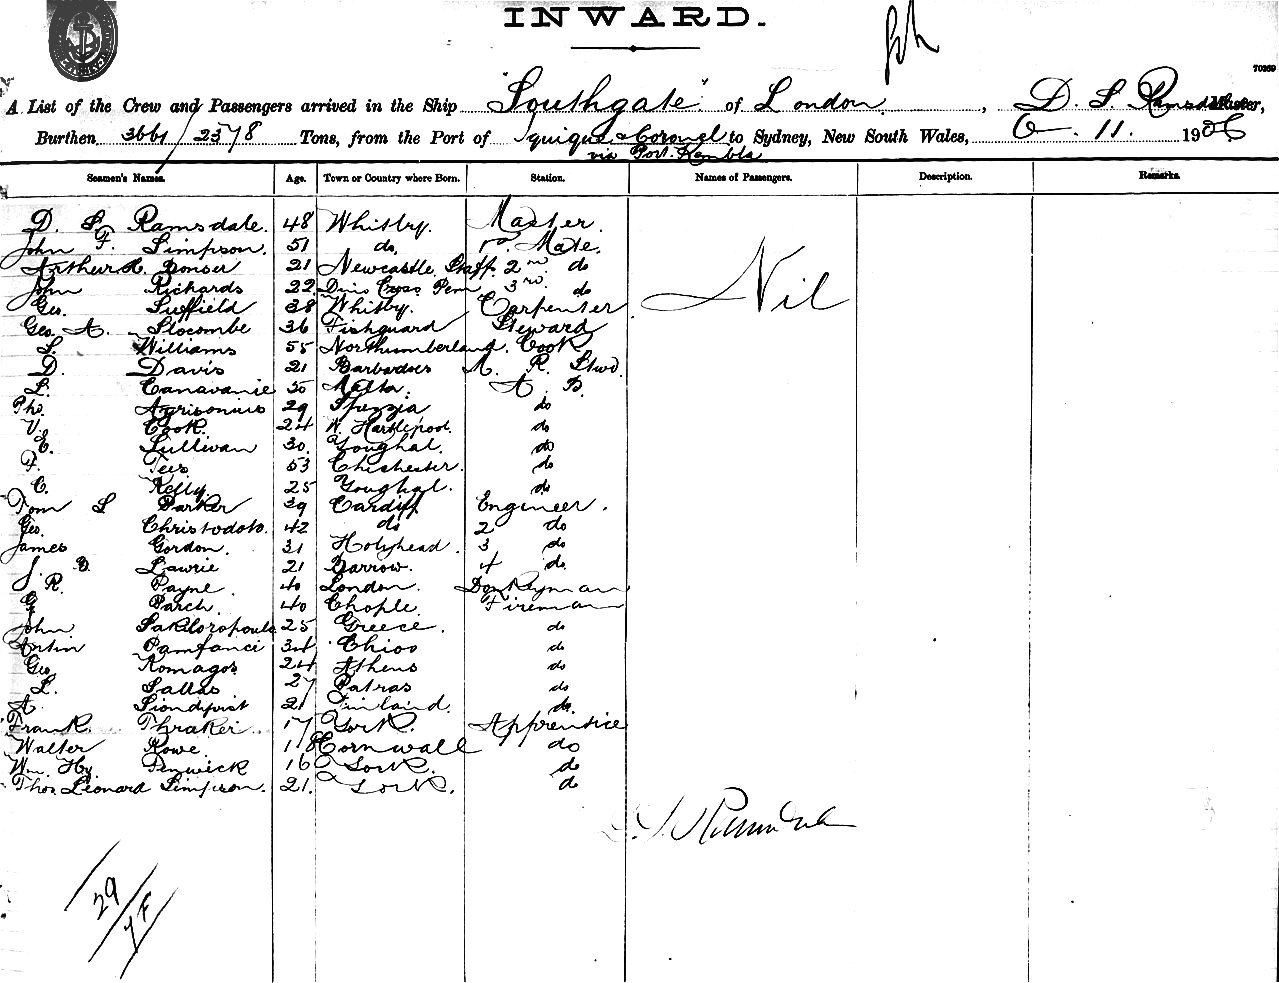 INWARD.
70369
A List of the Crew and Passengers arrived in the Ship "Southgate" of London, D. S. Ramsdale Master,
Burthen 3661/2378 Tons, from the Port of Iquique & Coronel to Sydney, New South Wales, 11. 1906
via Port Kembla
Seamen's Names. Age. Town or Country where Born. Station. Names of Passengers. Description. Remarks.
D. S. Ramsdale. 48 Whitby. Master.
John F. Simpson. 51 do. Mate.
Arthur Bonser 21 Newcastle Staff. 2nd do
John Richards 22 3rd do
Nil
Geo. Suffield 38 Whitby. Carpenter
Geo. A. Slocombe 36 Fishguard Steward
S. Williams 55 Northumberland. Cook
D. Davis 21 Barbadoes M. R. Stwd.
L. Canavanie 30 Malta. A. B.
Tho. 29 Spezzia do
V. Cook. 24 W. Hartlepool. do
E. Sullivan 30. Youghal. do
F. Tees 53 Chichester. do
C. Kelly. 25 Youghal. do
Tom S Parker 39 Cardiff Engineer.
Geo. Christodolo. 42 do 2 do
James Gordon. 31 Holyhead. 3 do
J. Lawrie 21 Barrow. 4 do.
R. Payne. 40 London. Donkeyman
G Parch. 40 Fireman
John 25 Greece. do
Antin Pamfanci 34 Chios do
Geo. Romagos 24 Athens do
L. Sallas 27 Patras do
A. 21 Finland. do.
Frank. Thraker. 17 York. Apprentice
Walter Rowe. 18 Cornwall do
Wm. Hy. Penwick 16 York. do
Thos Leonard Simpson. 21. York. do
29/